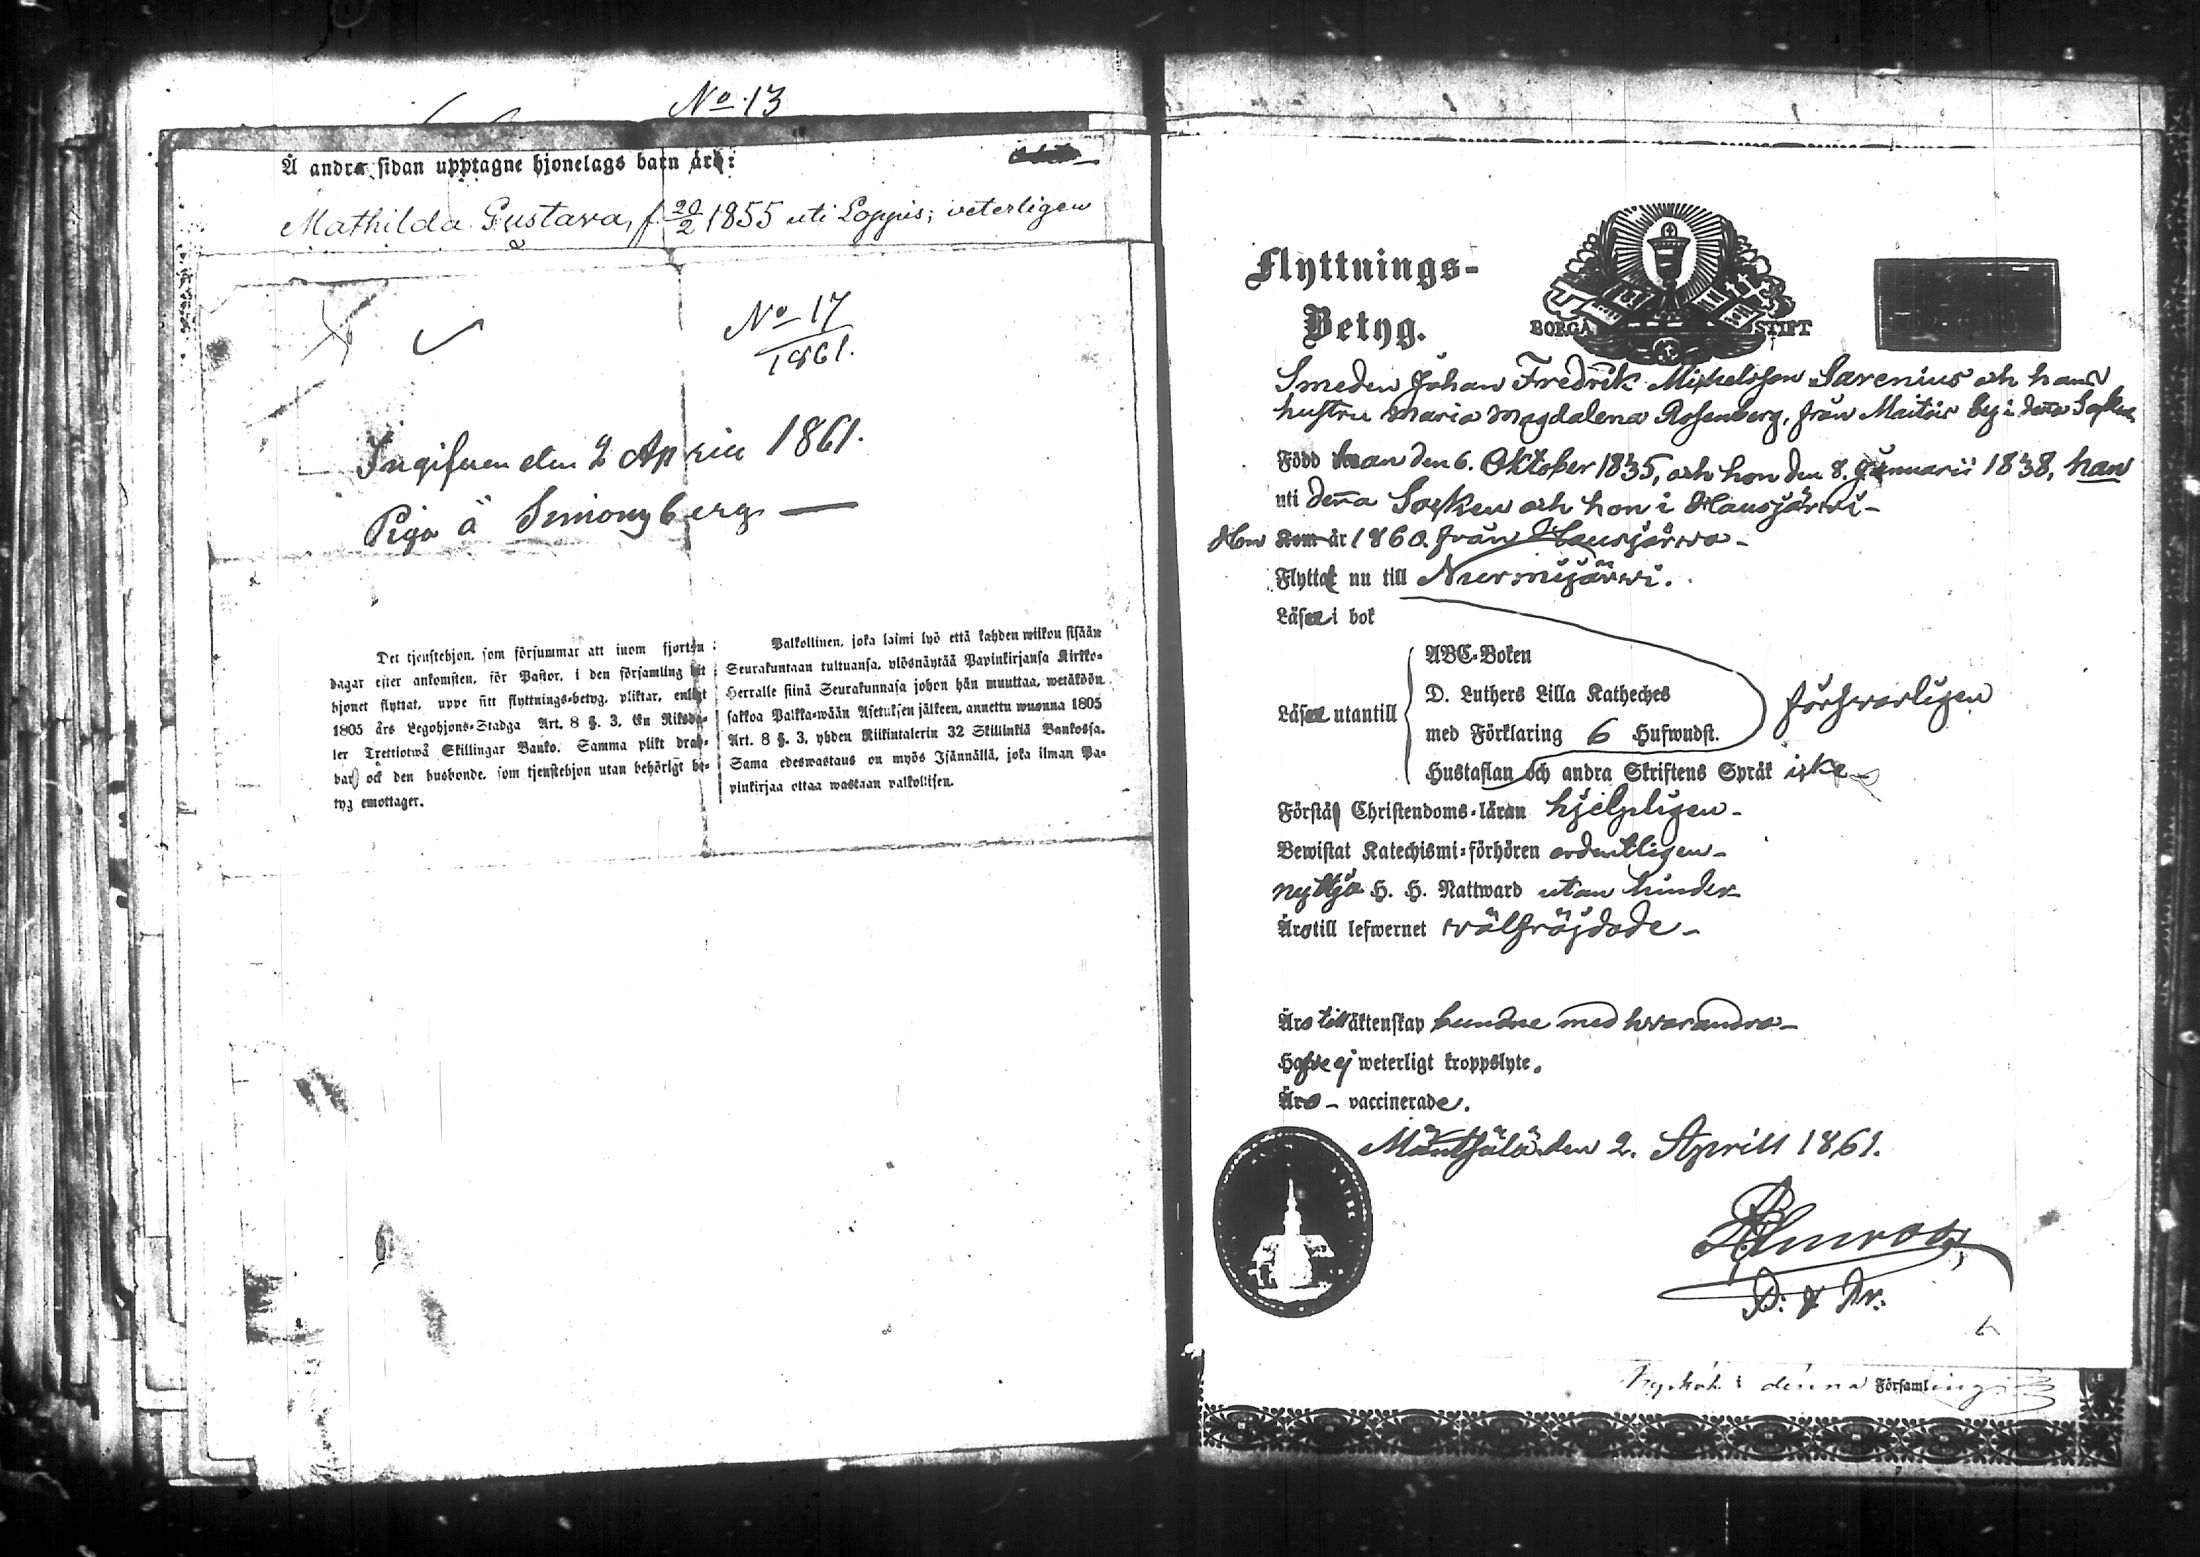 No 13
Å andra sidan upptagne hjonelags barn äro:
Mathilda Gustava, f. 20/2 1855 uti Loppis; veterligen
No 17
1861.
Ingifven den 2 April 1861.
Piga å Simonsberg
Det tjenstehjon, som försummar att inom fjorton
dagar efter ankomsten, för Pastor, i den församling dit
hjonet flyttat, uppe sitt flyttnings-betyg, pliktar, enligt
1805 års Legohjons-Stadga Art. 8 §. 3, En Riksda-
ler Trettiotwå Skillingar Banko. Samma plikt drab-
bar ock den husbonde, som tjenstehjon utan behörigt be-
tyg emottager.
Palkollinen, joka laimi lyö että kahden wiikon sisään
Seurakuntaan tultuansa, ylösnäytää Papinkirjansa Kirkko-
Herralle siinä Seurakunnasa johon hän muuttaa, wetäköön
sakkoa Palkka-wään Asetuksen jälkeen, annettu wuonna 1805
Art. 8 §. 3, yhden Riikintalerin 32 Skillinkiä Bankossa.
Sama edeswastaus on myös Isännällä, joka ilman Pa-
pinkirjaa ottaa wastaan palkollisen.
Flyttnings-
Betyg.
BORGÅ STIFT
Smeden Johan Fredrik Michelsson Sarenius och hans
hustru Maria Magdalena Rosenberg, från by i denna Socken
Född han den 6. Oktober 1835, och hon den 8. Januarii 1838, han
uti denna Socken och hon i Hausjärvi
Hon Kom år 1860 från Hausjärvi
Flyttat nu till Nurmijärvi.
Läser i bok
ABC-Boken
D. Luthers Lilla Kateches
med Förklaring 6 Hufwudst.
Läser utantill
försvarligen
Hustaflan och andra Skriftens Språk icke
Förstå Christendoms-läran hjelpligen
Bewistat Katechismi-förhören ordentligen
nyttja H. H. Nattward utan hinder
Äro till lefwernet välfräjdade
Äro till äktenskap bundne med hvarandra
Hafve ej weterligt kroppslyte.
Äro vaccinerade.
Mäntsälä den 2. Aprill 1861.
i denna Församling